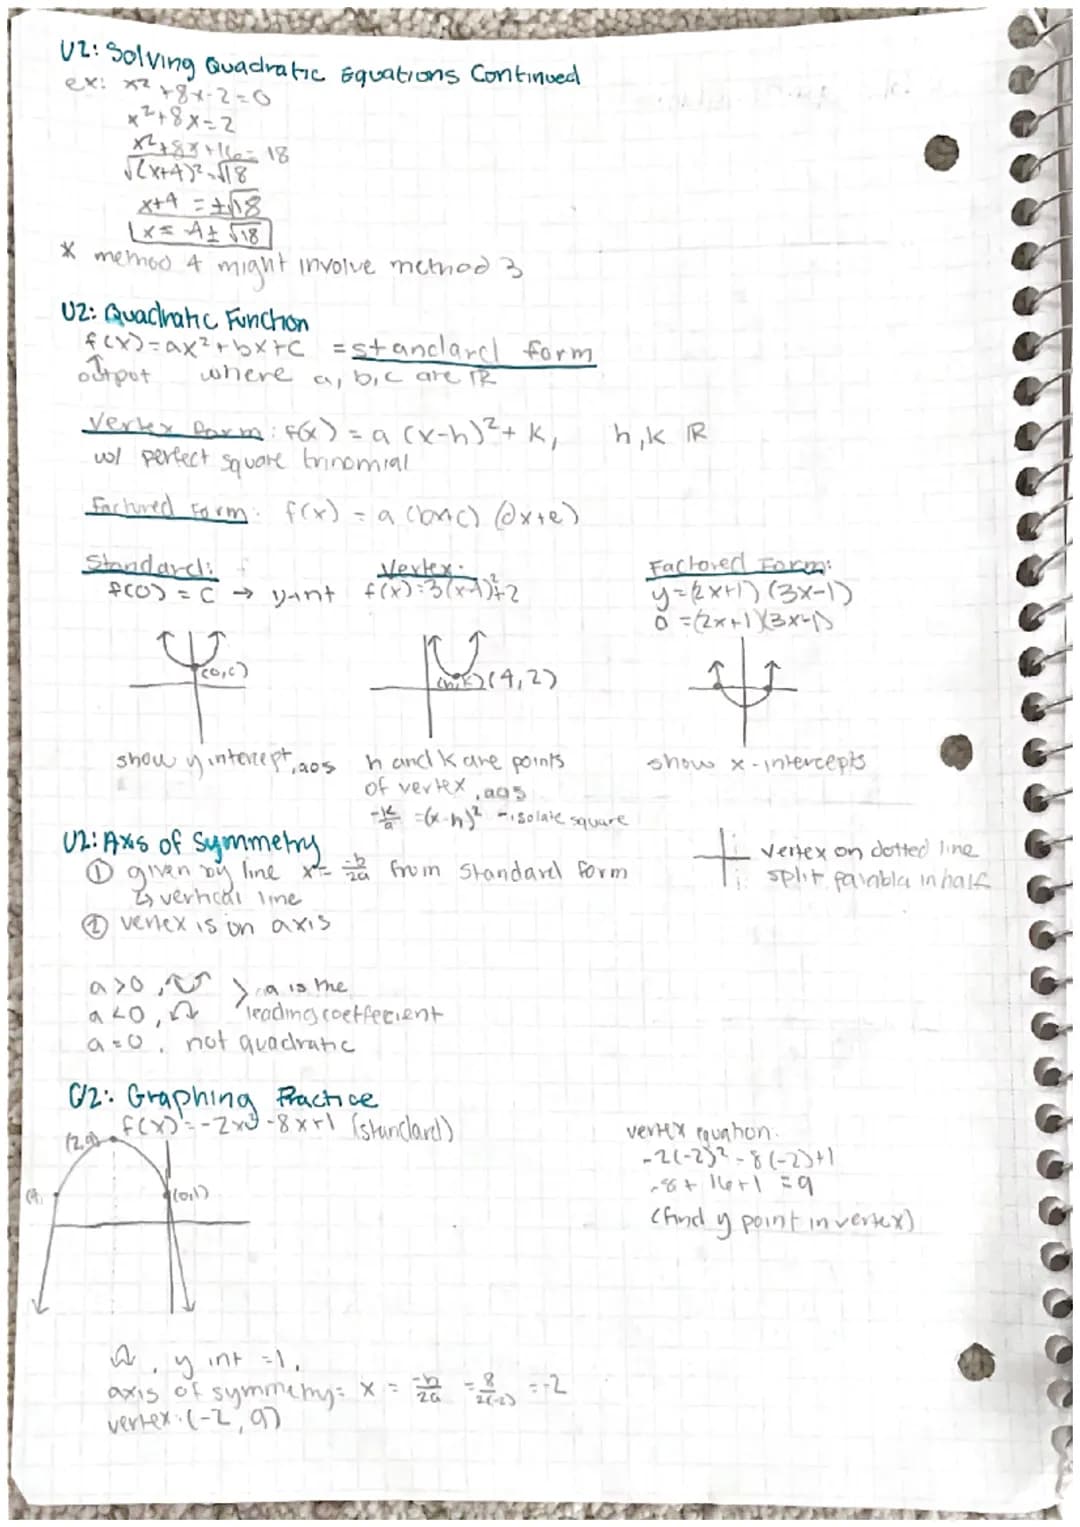 U2: Solving Quadratic Equations Continued
ex: x² + 8x - 2 = 0
x² + 8x = 2
x² + 8x + 16 = 18
√(x+4)² = √18
x+4 = ±√18
x = -4 ± √18
* method 4 might involve method 3
U2: Quadratic Function
f(x) = ax² + bx + c = standard form
output where a, b, c are ℝ
Vertex Form: f(x) = a (x-h)² + k, h, k ℝ
w/ perfect square trinomial
Factored Form: f(x) = a (bx+c) (dx+e)
Standard: Vertex: Factored Form:
f(0) = c → y-int f(x) = 3(x-4)² + 2 y = (2x+1) (3x-1)
0 = (2x+1)(3x-1)
(0,c) (h,k) (4,2)
show y intercept, aos h and k are points show x-intercepts
of vertex, aos
-k/a = (x-h)² - isolate square
U2: Axis of Symmetry
① given by line x = -b/2a from standard form
↳ vertical line
② vertex is on axis
vertex on dotted line
split parabla in half
a > 0, > a is the
a < 0, leading coeffecient
a = 0, not quadratic
U2: Graphing Practice
f(x) = -2x² - 8x + 1 (standard)
(2,9)
(0,1)
vertex equation:
-2(-2)² - 8(-2) + 1
-8 + 16 + 1 = 9
(find y point in vertex)
y int = 1,
axis of symmetry: x = -b/2a = 8/2(-2) = -2
vertex: (-2, 9)